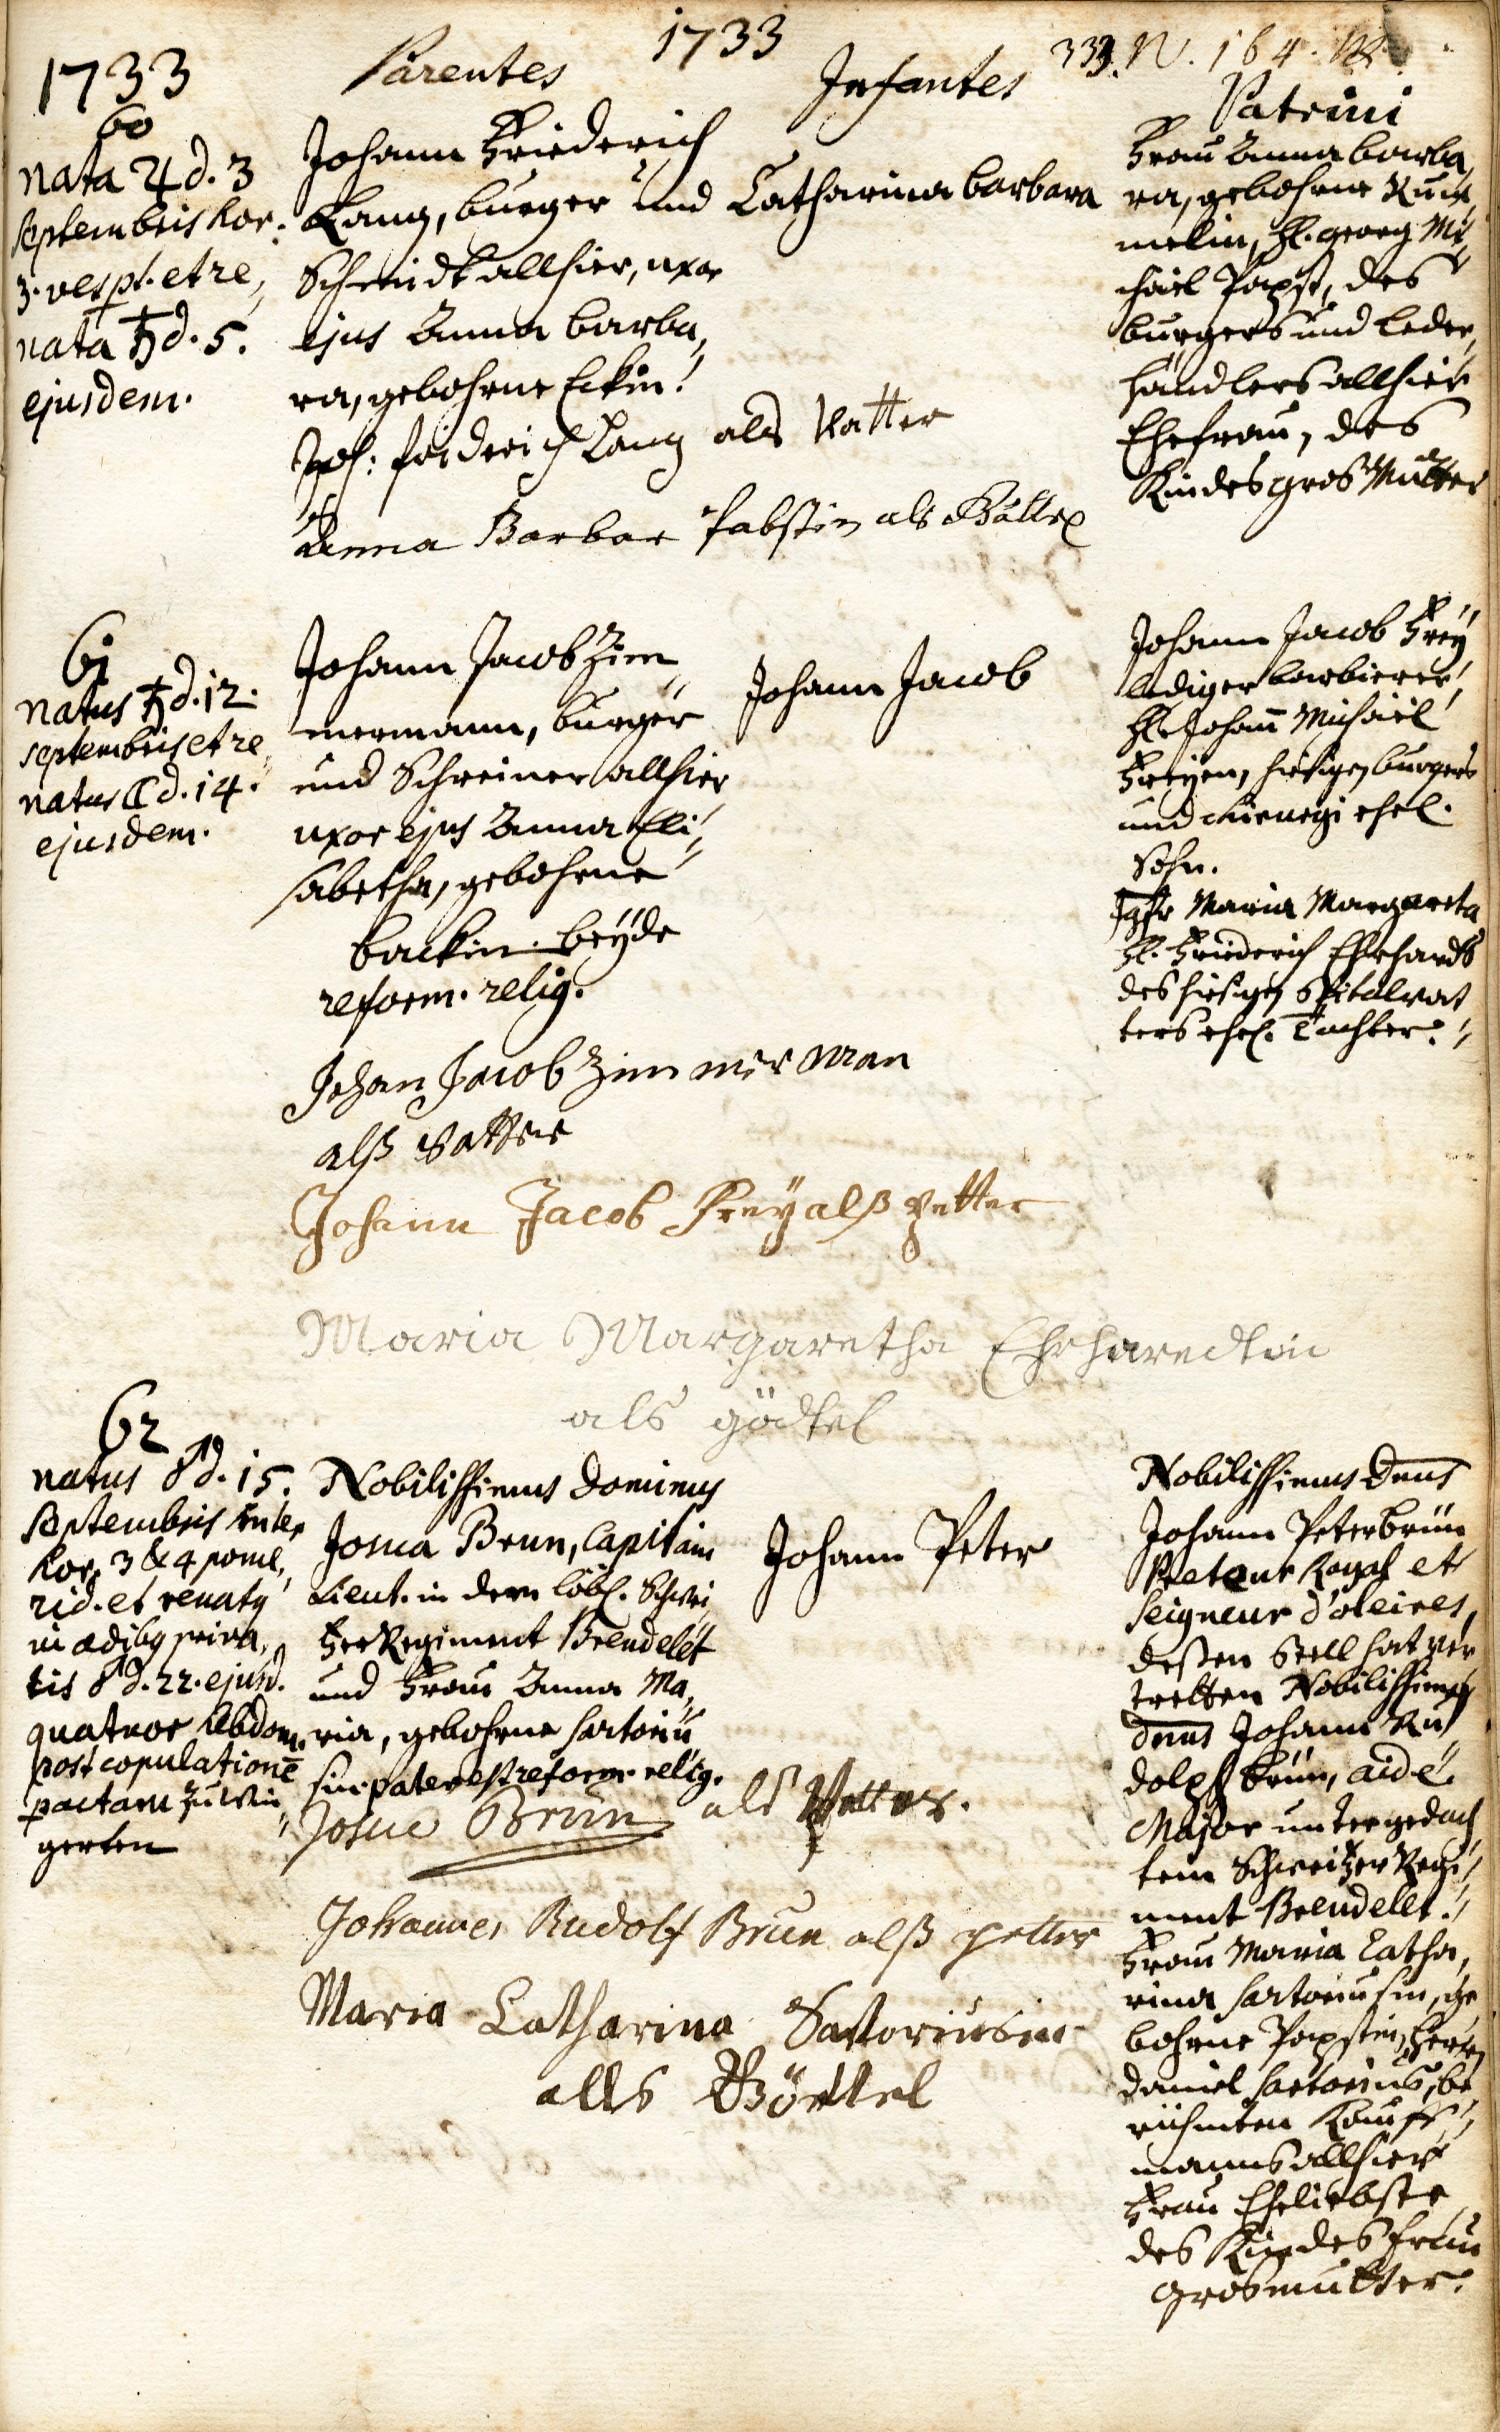 1733
333. N. 164.
1733
Parentes
Infantes
Patrini
60
nata ♃ d. 3
Septembris hor.
3. vesp. et re,,
nata ♄ d. 5.
ejusdem.
Johann Friederich
Lang, burger und
Schmidt allhier, uxor
ejus Anna Barba,,
ra, gebohrne Eckin.
Joh: friderich Lang als Vatter
Anna Barbar Pabstin als Göttel
Catharina barbara
Frau Anna barba,,
ra, gebohrne
melin, H. georg Mi,,
chäel Papst, des
burgers und leder,,
händlers allhier
Ehefrau, des
Kindes gros Mutter
61
natus ♄ d. 12.
septembris et re,,
natus ☾ d. 14.
ejusdem.
Johann Jacob Zim,,
mermann, burger
und Schreiner allhier
uxor ejus Anna Eli,,
sabetha, gebohrne
backin. beyde
reform. relig.
Johan Jacob Zimmerman
alß Vatter
Johann Jacob Frey alß petter
Maria Margaretha Ehrharedtin
als gödtel
Johann Jacob
Johann Jacob Frey
lediger barbierer,
H. Johann Michäel
Freyen, hiesigen burgers
und Chirurgi ehel.
Sohn.
Jgfr Maria Margareta
H. Friederich Ehrhardts
des hiesigen Spitalvat
ters ehel. Tochter.
62
natus ♂ d. 15.
septembris inter
hor. 3 & 4 pome,,
rid. et renatus
in ædibus priva,,
tis ♂ d. 22. ejusd.
quatuor hebdom.
post copulationē
pactam zu Win,,
gerten
Nobilissimus Dominus
Josua Brun, Capitain
Lieut. in dem löbl. Schwei,,
tzer Regiment Brendelet
und Frau Anna Ma,,
ria, gebohrne Sartoriu
sin. pater est reform. relig.
Josue Brun als Vatter.
Johannes Rudolf Brun alß petter
Maria Catharina Sartoriusin
alls Göttel
Johann Peter
Nobilissimus Dnus
Johann Peter brün
et
Seigneur d'oleires,
deßen Stell hat ver
tretten Nobilissimus
dnus Johann Ru,,
dolph brün, aide
Major unter gedach,,
tem Schweitzer Regi,,
ment Brendelet.
Frau Maria Catha,,
rina Sartoriusin, ge
bohrne Papstin, Herrn
Daniel Sartorius, be,,
rühmten Kauff,,
manns allhier
Frau Eheliebste
des Kindes Frau
Grosmutter.